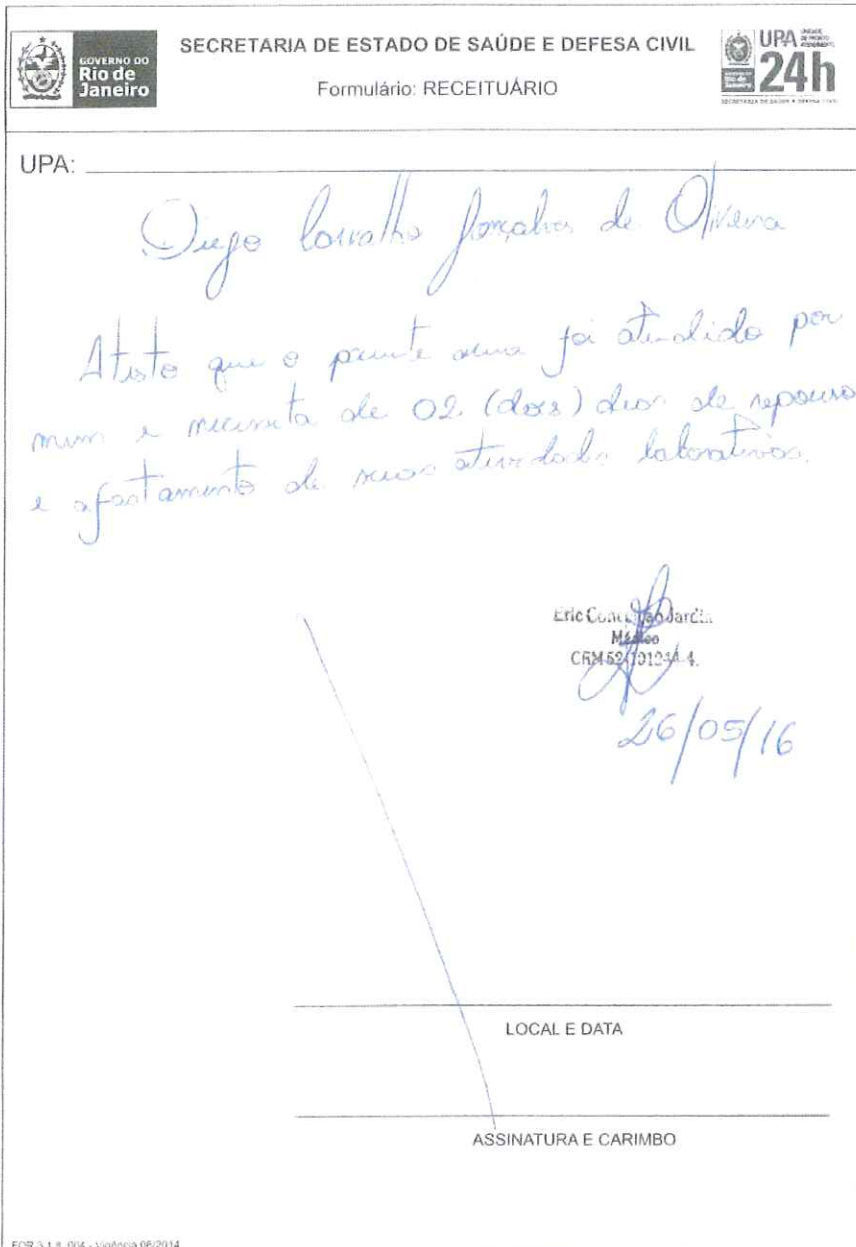 GOVERNO DO
Rio de
Janeiro
SECRETARIA DE ESTADO DE SAÚDE E DEFESA CIVIL
Formulário: RECEITUÁRIO
UPA UNIDADE DE PRONTO ATENDIMENTO
24h
SECRETARIA DE SAÚDE E DEFESA CIVIL
UPA:
Diego Carvalho Gonçalves de Oliveira
Atesto que o paciente acima foi atendido por
mim e necessita de 02 (dois) dias de repouso
e afastamento de suas atividades laborativas.
Eric Jardim
Médico
CRM
26/05/16
LOCAL E DATA
ASSINATURA E CARIMBO
Vigência 06/2014